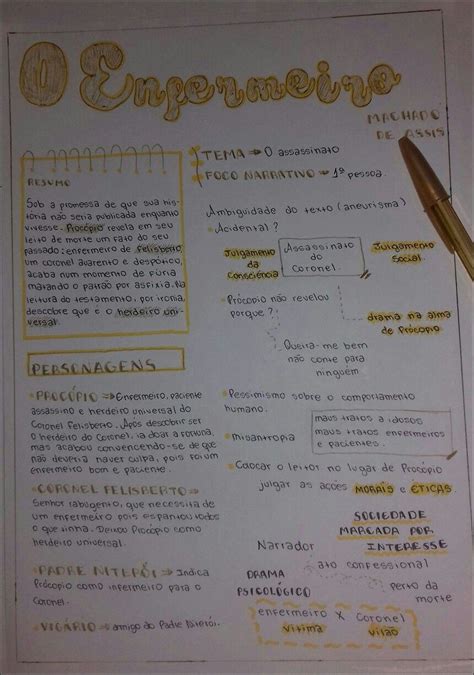 O Enfermeiro
MACHADO
DE ASSIS
RESUMO
Sob a promessa de que sua his-
tória não seria publicada enquanto
vivesse. Procópio revela em seu
leito de morte um fato do seu
passado: enfermeiro de Felisberto
um coronel avarento e despótico,
acaba num momento de fúria
matando o patrão por asfixia. Na
leitura do testamento, por ironia,
descobre que é o herdeiro uni-
versal.
TEMA ⇒ O assassinato
FOCO NARRATIVO ⇒ 1ª pessoa.
Ambiguidade do texto (aneurisma)
Acidental?
Julgamento
da
Consciência
Assassinato
do
Coronel.
Julgamento
Social.
Procópio não revelou
porque?
drama na alma
de Procópio
Queira-me bem
não conte para
ninguém.
PERSONAGENS
PROCÓPIO ⇒ Enfermeiro, paciente
assassino e herdeiro universal do
Coronel Felisberto. Após descobrir ser
o herdeiro do Coronel, ia doar a fortuna,
mas acabou convencendo-se de que
não deveria haver culpa, pois foi um
enfermeiro bom e paciente.
CORONEL FELISBERTO ⇒
Senhor rabugento, que necessita de
um enfermeiro pois espantou todos
o que tinha. Deixou Procópio como
herdeiro universal.
PADRE NITERÓI ⇒ Indica
Procópio como infermeiro para o
Coronel.
VIGÁRIO ⇒ amigo do Padre Niterói.
Pessimismo sobre o comportamento
humano.
misantropia
maus tratos a idosos
maus tratos enfermeiros
e pacientes.
Colocar o leitor no lugar de Procópio
julgar as ações MORAIS e ÉTICAS.
SOCIEDADE
MARCADA POR
INTERESSE
Narrador
ato confessional
DRAMA
PSICOLÓGICO
perto da
morte
enfermeiro X Coronel
vítima
vilão